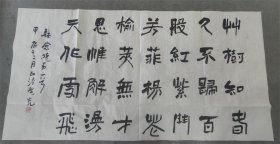 艸樹知春
久不歸百
般紅紫鬥
芳菲楊花
榆莢無才
思惟解漫
天作雪飛
韓愈